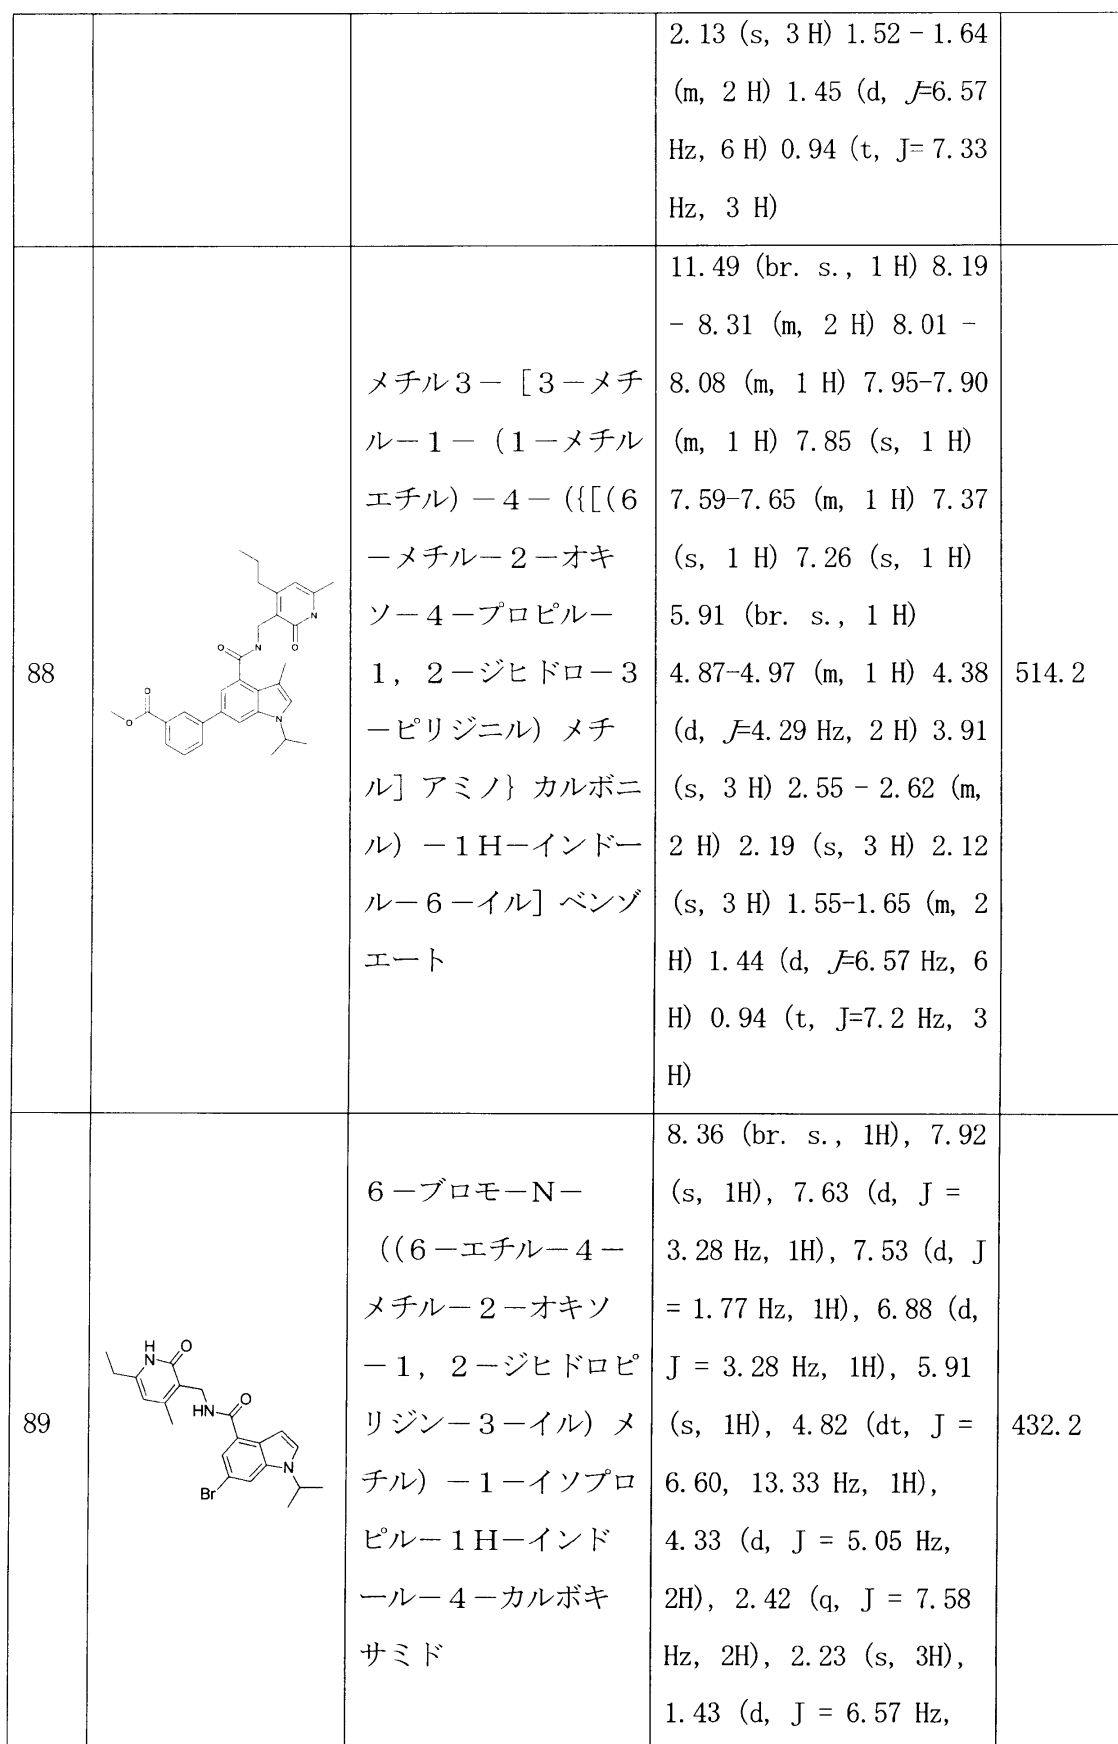 2.13 (s, 3 H) 1.52 - 1.64
(m, 2 H) 1.45 (d, J=6.57
Hz, 6 H) 0.94 (t, J= 7.33
Hz, 3 H)
88
メチル３－［３－メチ
ル－１－（１－メチル
エチル）－４－（{[（６
－メチル－２－オキ
ソ－４－プロピル－
１，２－ジヒドロ－３
－ピリジニル）メチ
ル］アミノ}カルボニ
ル）－１Ｈ－インドー
ル－６－イル］ベンゾ
エート
11.49 (br. s., 1 H) 8.19
- 8.31 (m, 2 H) 8.01 -
8.08 (m, 1 H) 7.95-7.90
(m, 1 H) 7.85 (s, 1 H)
7.59-7.65 (m, 1 H) 7.37
(s, 1 H) 7.26 (s, 1 H)
5.91 (br. s., 1 H)
4.87-4.97 (m, 1 H) 4.38
(d, J=4.29 Hz, 2 H) 3.91
(s, 3 H) 2.55 - 2.62 (m,
2 H) 2.19 (s, 3 H) 2.12
(s, 3 H) 1.55-1.65 (m, 2
H) 1.44 (d, J=6.57 Hz, 6
H) 0.94 (t, J=7.2 Hz, 3
H)
514.2
89
H
N
O
O
HN
N
Br
６－ブロモ－Ｎ－
（（６－エチル－４－
メチル－２－オキソ
－１，２－ジヒドロピ
リジン－３－イル）メ
チル）－１－イソプロ
ピル－１Ｈ－インド
ール－４－カルボキ
サミド
8.36 (br. s., 1H), 7.92
(s, 1H), 7.63 (d, J =
3.28 Hz, 1H), 7.53 (d, J
= 1.77 Hz, 1H), 6.88 (d,
J = 3.28 Hz, 1H), 5.91
(s, 1H), 4.82 (dt, J =
6.60, 13.33 Hz, 1H),
4.33 (d, J = 5.05 Hz,
2H), 2.42 (q, J = 7.58
Hz, 2H), 2.23 (s, 3H),
1.43 (d, J = 6.57 Hz,
432.2